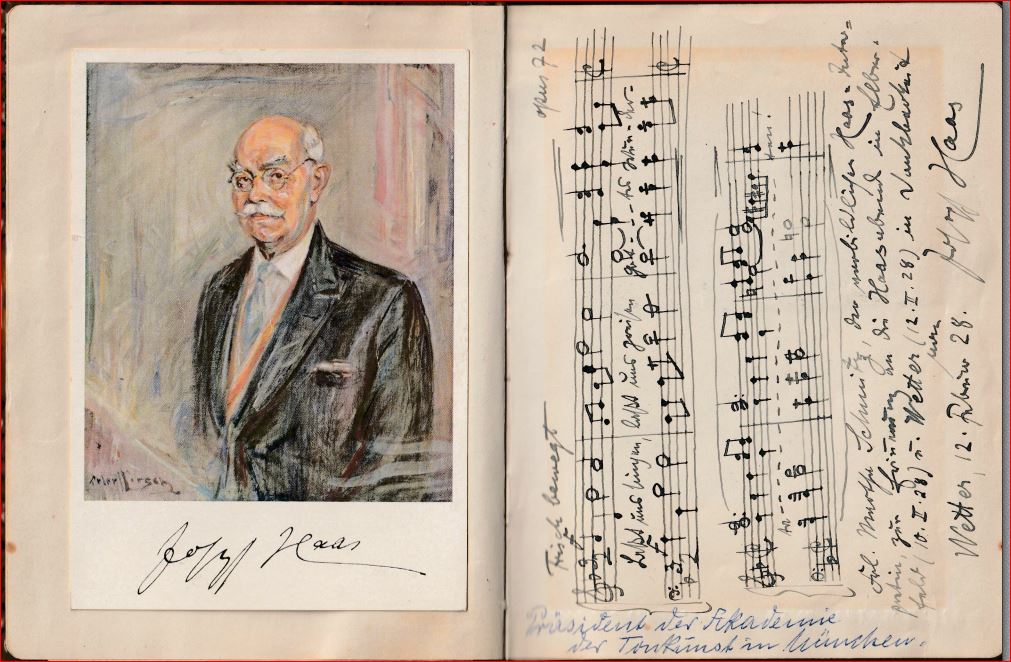 Joseph Haas
opus 72
Frisch bewegt
Laßt uns singen, laßt uns preisen
Frl. Schmitz, der vorbildlichen Haas-Inter=
pretin zur Erinnerung an die Haasabende in Elber=
feld (10. II. 28) u. Wetter (12. II. 28) in Dankbarkeit
von
Wetter, 12. Februar 28. Joseph Haas
Präsident der Akademie
der Tonkunst in München.